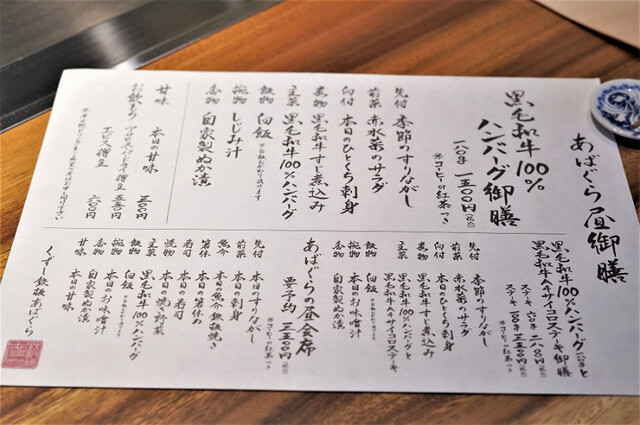 あばぐら昼御膳
黒毛和牛100%
ハンバーグ御膳
一八〇g 一五〇〇円(税込)
※コーヒーor紅茶つき
先付 季節のすりながし
前菜 赤水菜のサラダ
向付 本日のひとくち刺身
煮物 黒毛和牛すじ煮込み
主菜 黒毛和牛100%ハンバーグ
飯物 白飯
椀物 しじみ汁
香物 自家製ぬか漬
甘味 本日の甘味 三〇〇円
お飲もの
エビス樽生 六〇〇円
黒毛和牛100%ハンバーグ一八〇gと
黒毛和牛A4サイコロステーキ御膳
ステーキ 六〇g 二八〇〇円(税込)
ステーキ 一〇〇g 三五〇〇円(税込)
※コーヒーor紅茶つき
先付 季節のすりながし
前菜 赤水菜のサラダ
向付 本日のひとくち刺身
煮物 黒毛和牛すじ煮込み
主菜 黒毛和牛100%ハンバーグと
黒毛和牛A4サイコロステーキ
飯物 白飯
椀物 本日のお味噌汁
香物 自家製ぬか漬
あばぐらの昼会席
要予約 三五〇〇円(税込)
※コーヒーor紅茶つき
先付 本日のすりながし
前菜 本日の刺身
魚介 本日の魚介鉄板焼き
箸休 本日の箸休め
寿司 本日の寿司
焼物 本日の焼き野菜
主菜 黒毛和牛100%ハンバーグ
飯物 白飯
椀物 本日のお味噌汁
香物 自家製ぬか漬
甘味 本日の甘味
くずし鉄板あばぐら